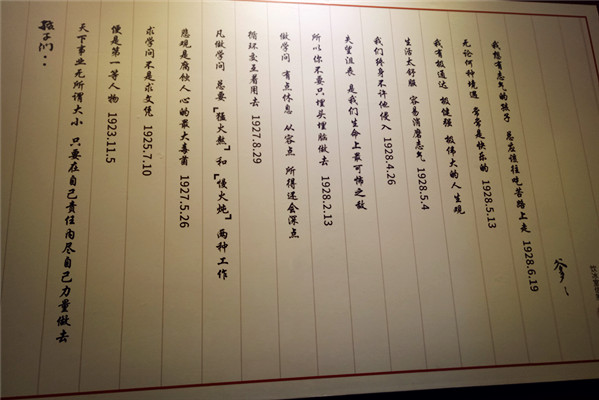 孩子们：
天下事业无所谓大小 只要在自己责任内尽自己力量做去
便是第一等人物 1923.11.5
求学问不是求文凭 1925.7.10
悲观是腐蚀人心的最大毒菌 1927.5.26
凡做学问 总要「猛火熬」和「慢火炖」两种工作
循环交互着用去 1927.8.29
做学问 有点休息 从容点 所得还会深点
所以你不要只埋头埋脑做去 1928.2.13
失望沮丧 是我们生命上最可怖之敌
我们终身不许他侵入 1928.4.26
生活太舒服 容易消磨志气 1928.5.4
我有极通达 极健强 极伟大的人生观
无论何种境遇 常常是快乐的 1928.5.13
我想有志气的孩子 总应该往吃苦路上走 1928.6.19
爹〻